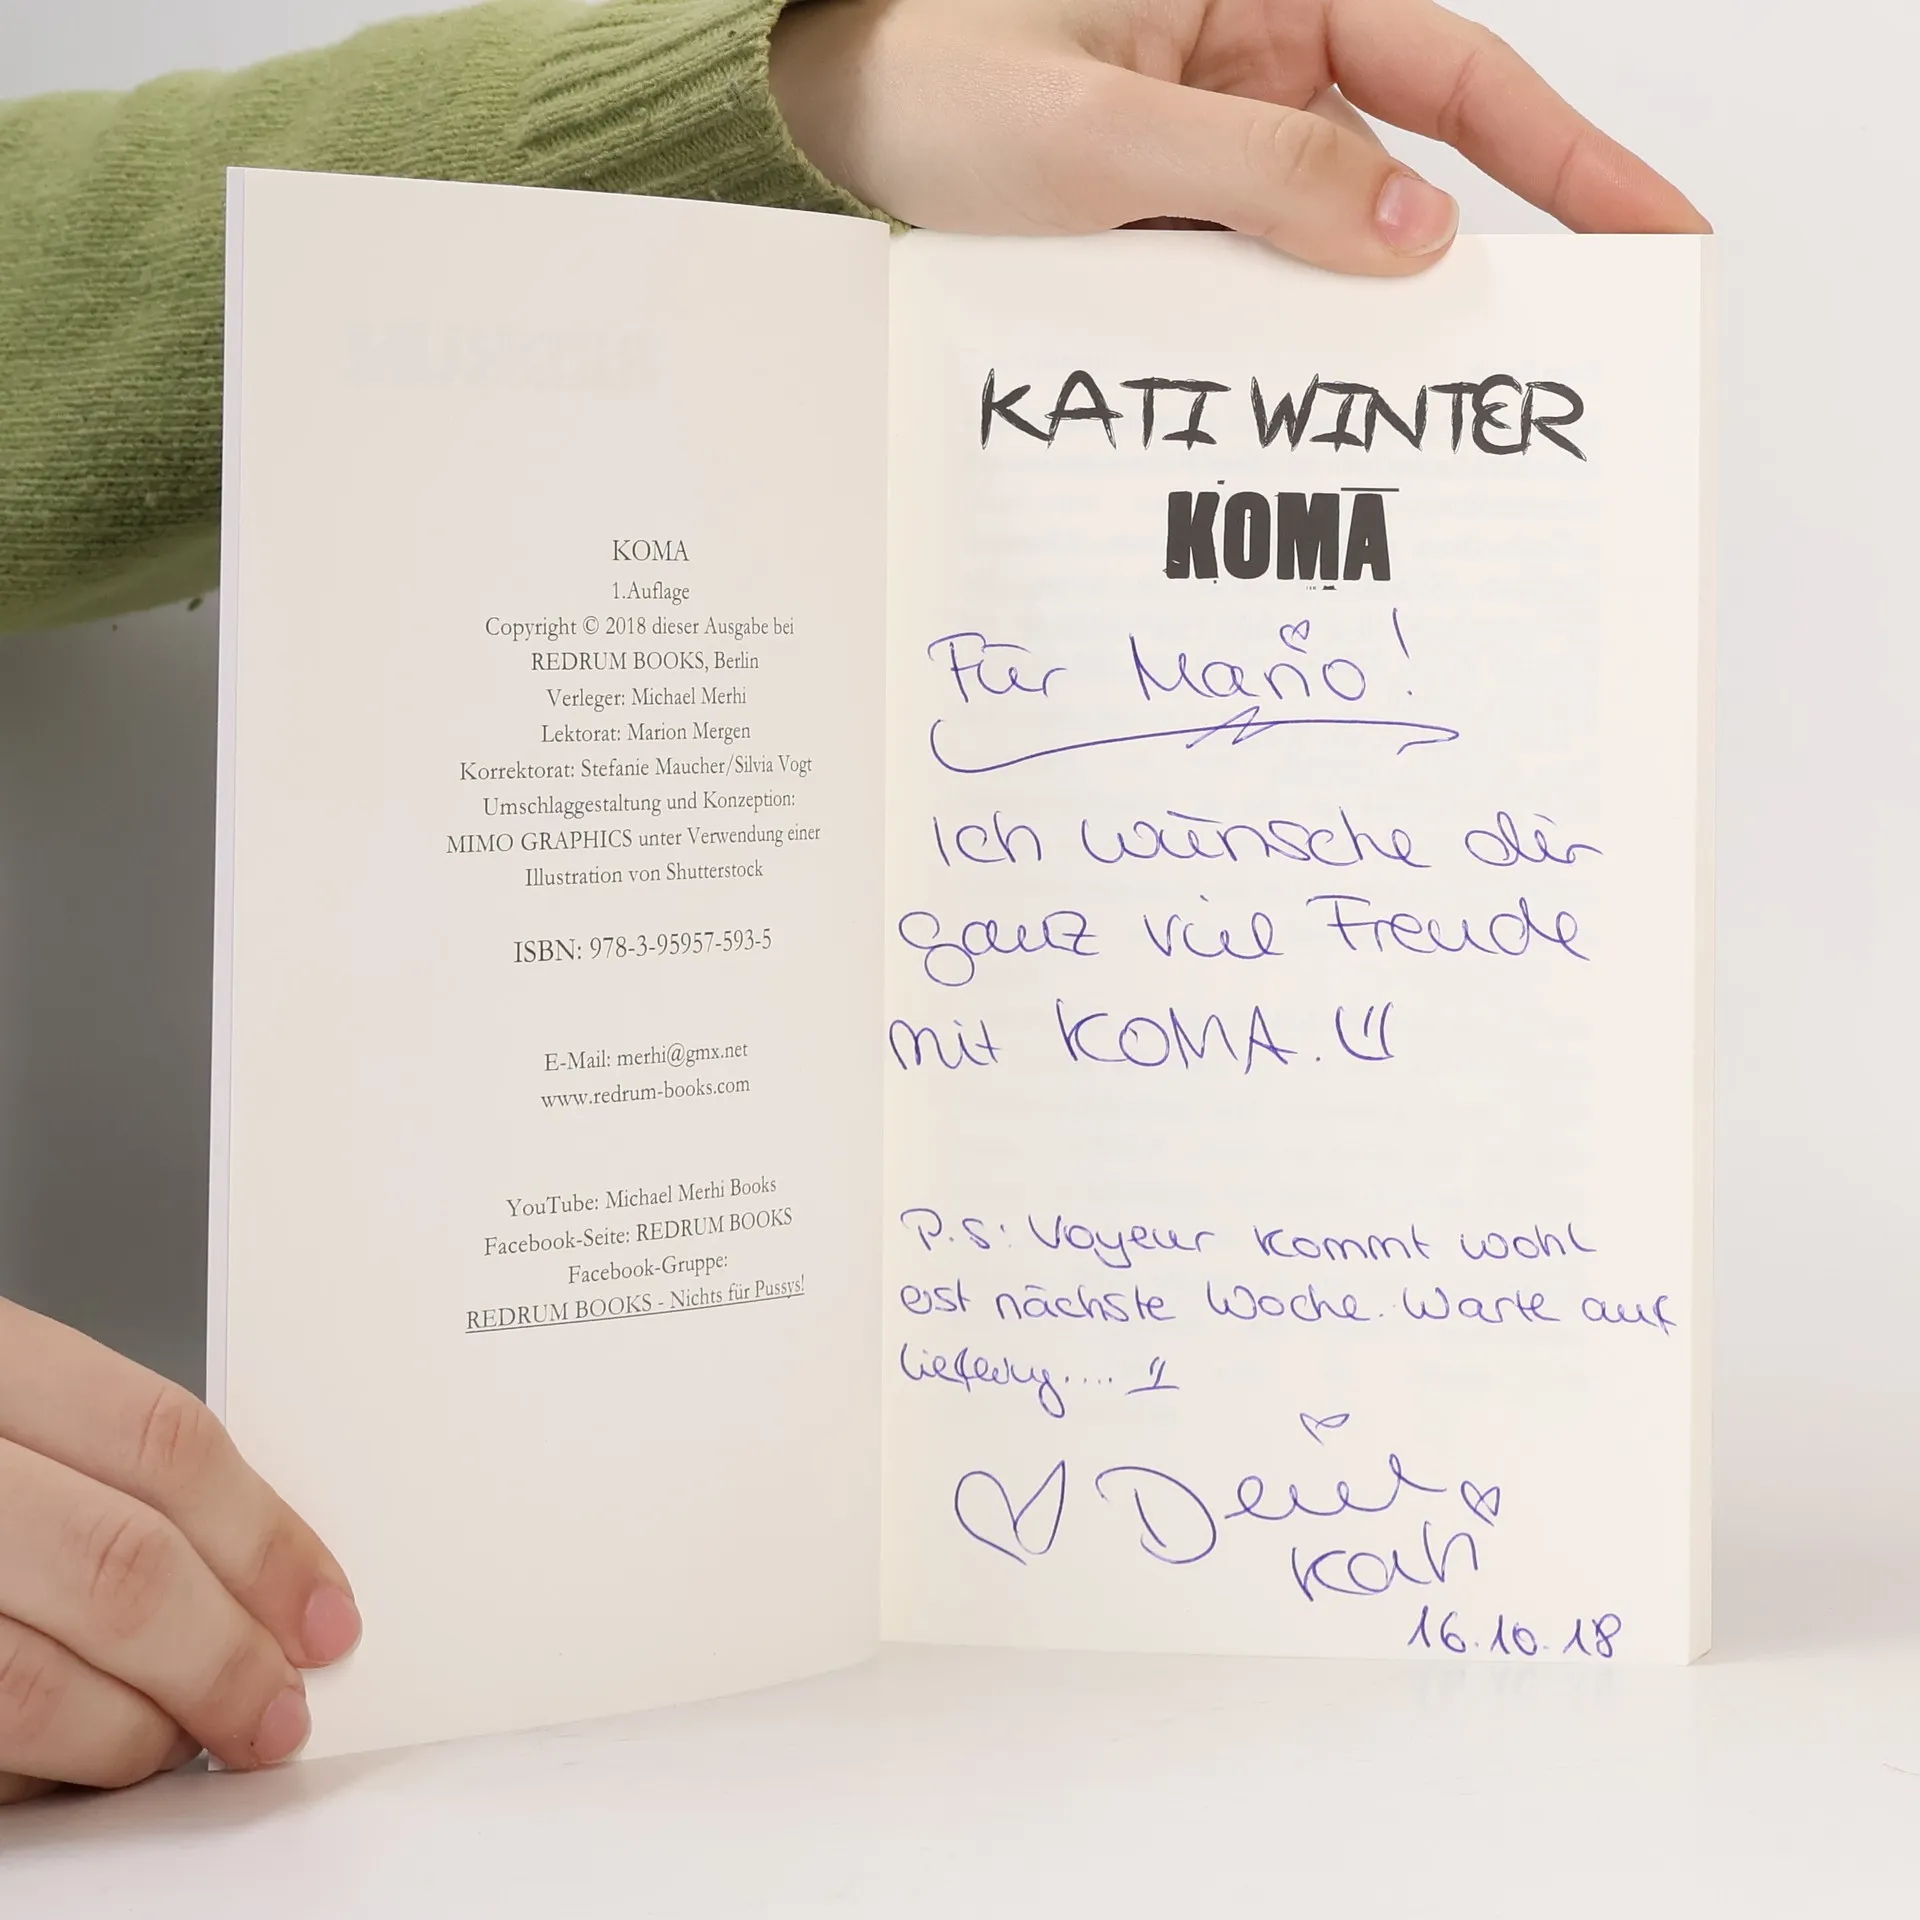 KOMA
1.Auflage
Copyright © 2018 dieser Ausgabe bei
REDRUM BOOKS, Berlin
Verleger: Michael Merhi
Lektorat: Marion Mergen
Korrektorat: Stefanie Maucher/Silvia Vogt
Umschlaggestaltung und Konzeption:
MIMO GRAPHICS unter Verwendung einer
Illustration von Shutterstock
ISBN: 978-3-95957-593-5
E-Mail: merhi@gmx.net
www.redrum-books.com
YouTube: Michael Merhi Books
Facebook-Seite: REDRUM BOOKS
Facebook-Gruppe:
REDRUM BOOKS - Nichts für Pussys!
KATI WINTER
KOMA
Für Mario!
Ich wünsche dir
ganz viel Freude
mit KOMA.
P.S: Voyeur kommt wohl
erst nächste Woche. Warte auf
Lieferung....
Deine
Kati
16.10.18